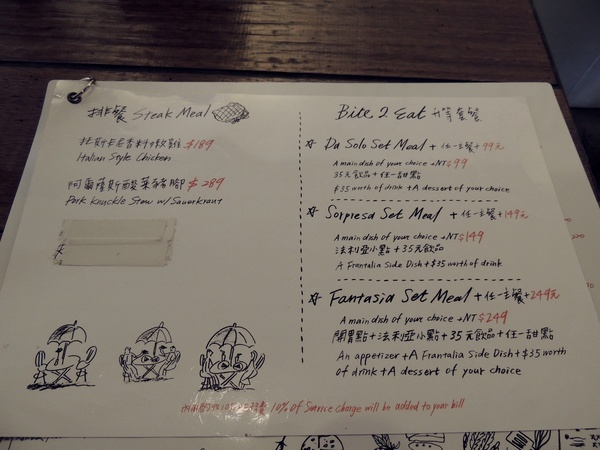 排餐 Steak Meal
托斯卡尼香料嫩雞 $189
Italian Style Chicken
阿爾薩斯酸菜豬腳 $289
Pork Knuckle Stew w/ Sauerkraut
Bite 2 Eat 升等套餐
☆ Da Solo Set Meal + 任一主餐 + 99元
A main dish of your choice + NT$99
35元飲品 + 任一甜點
$35 worth of drink + A dessert of your choice
☆ Sorpresa Set Meal + 任一主餐 + 149元
A main dish of your choice + NT$149
法利亞小點 + 35元飲品
A Frantalia Side Dish + $35 worth of drink
☆ Fantasia Set Meal + 任一主餐 + 249元
A main dish of your choice + NT $249
開胃點 + 法利亞小點 + 35元飲品 + 任一甜點
An appetizer + A Frantalia Side Dish + $35 worth
of drink + A dessert of your choice
10% of Service charge will be added to your bill